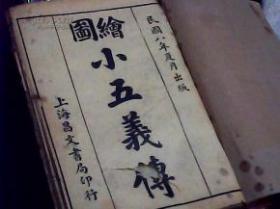 民國八年夏月出版
繪圖
小五義傳
上海昌文書局印行